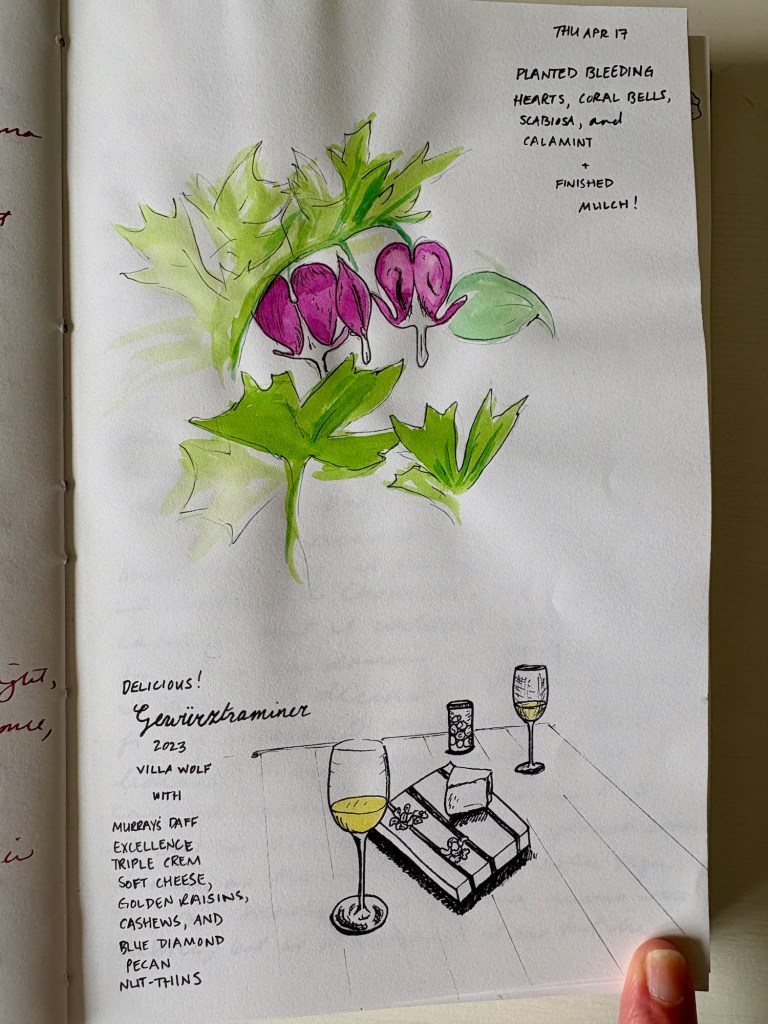 THU APR 17
PLANTED BLEEDING
HEARTS, CORAL BELLS,
SCABIOSA, and
CALAMINT
+
FINISHED
MULCH!
DELICIOUS!
Gewürztraminer
2023
VILLA WOLF
WITH
MURRAY'S DAFF
EXCELLENCE
TRIPLE CREM
SOFT CHEESE,
GOLDEN RAISINS,
CASHEWS, AND
BLUE DIAMOND
PECAN
NUT-THINS